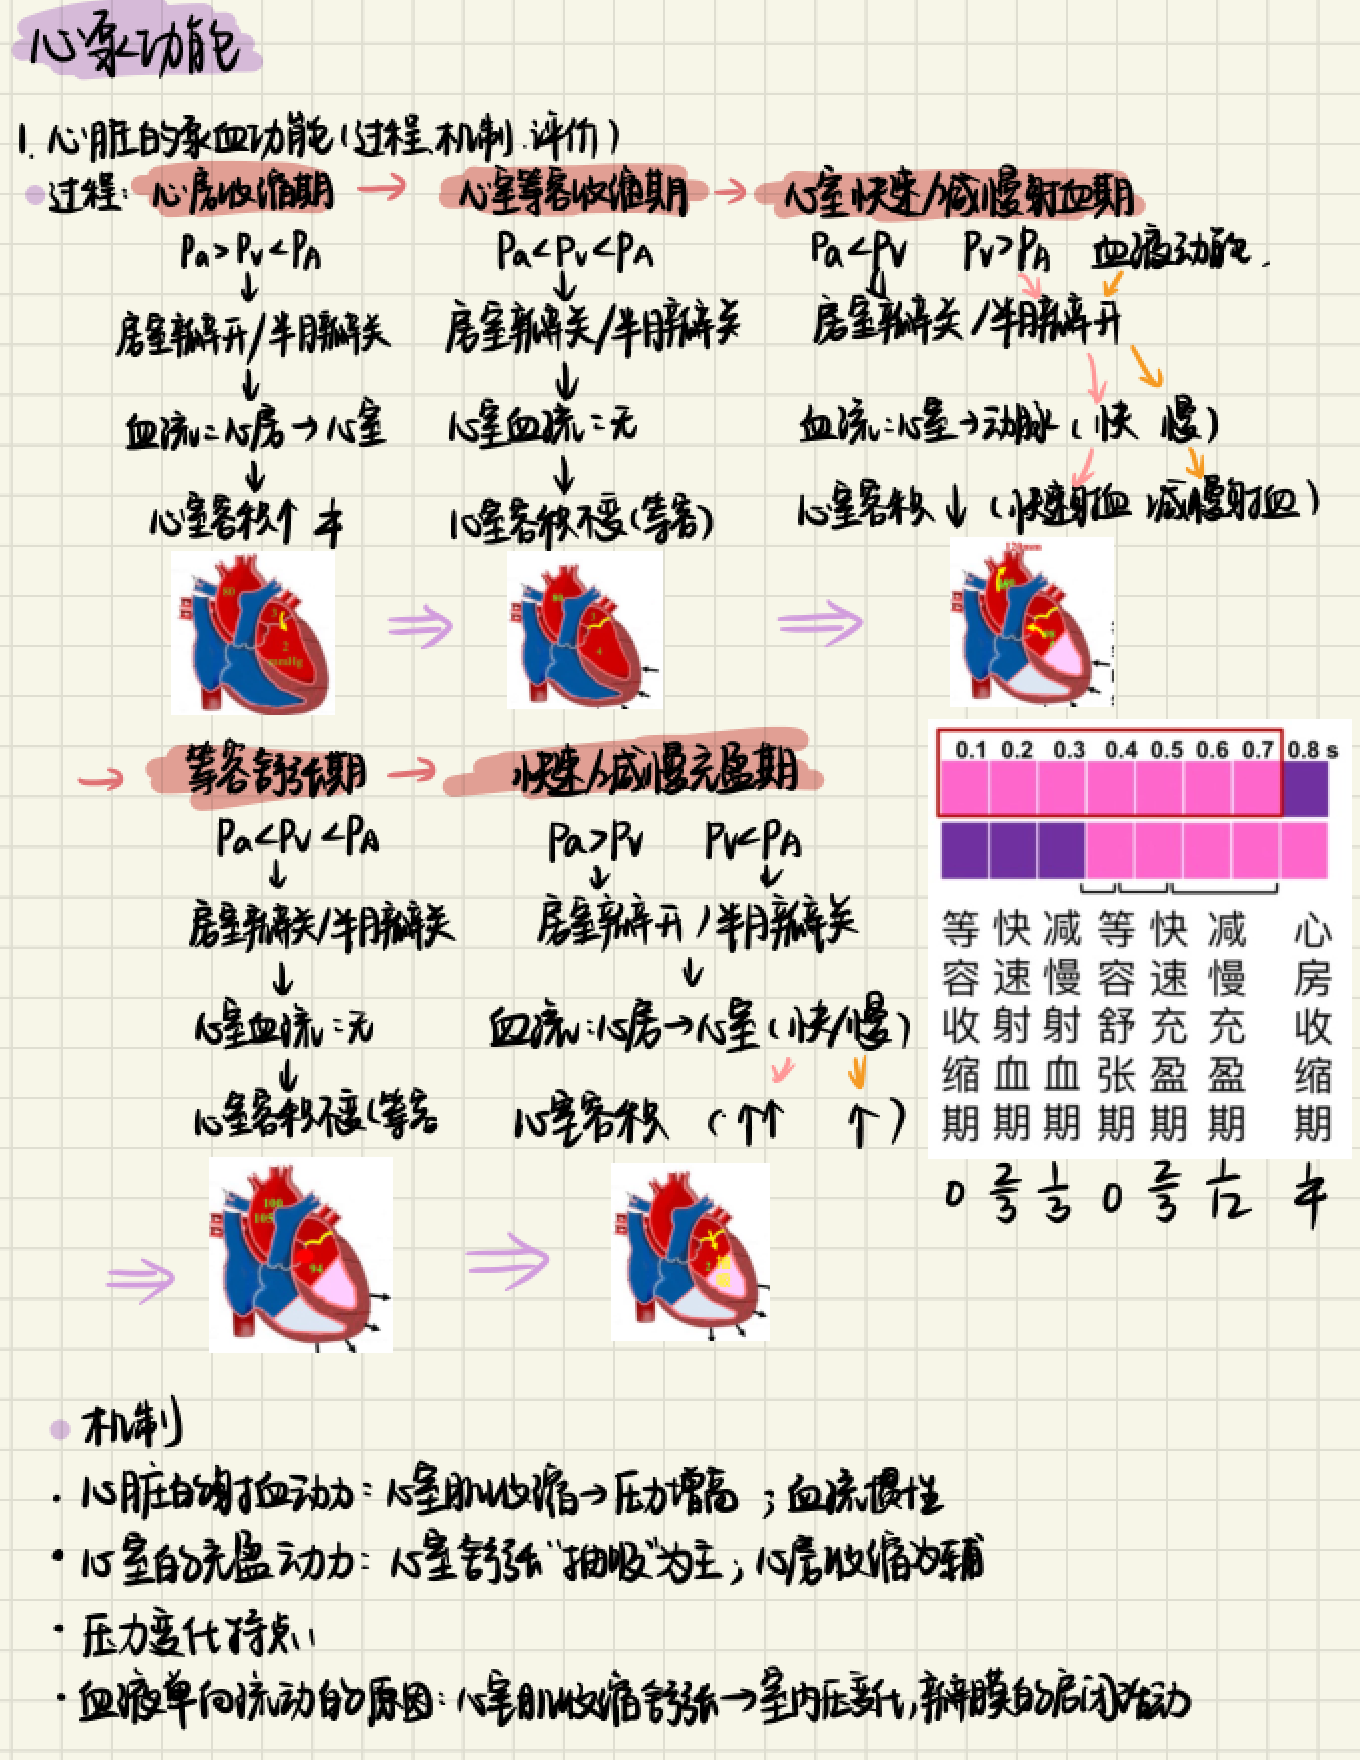 心泵功能
1. 心脏的泵血功能(过程.机制.评价)
过程: 心房收缩期 → 心室等容收缩期 → 心室快速/减慢射血期
Pa>Pv<PA
↓
房室瓣开/半月瓣关
↓
血流:心房→心室
↓
心室容积↑ 1/4
Pa<Pv<PA
↓
房室瓣关/半月瓣关
↓
心室血流:无
↓
心室容积不变(等容)
Pa<Pv Pv>PA 血液动能.
↓
房室瓣关/半月瓣开
血流:心室→动脉(快 慢)
心室容积↓(快速射血 减慢射血)
80
3
2
mmHg
80
3
4
120mm
→ 等容舒张期 → 快速/减慢充盈期
Pa<Pv<PA
↓
房室瓣关/半月瓣关
↓
心室血流:无
↓
心室容积不变(等容
Pa>Pv Pv<PA
↓ ↓
房室瓣开/半月瓣关
↓
血流:心房→心室(快/慢)
心室容积 (↑↑ ↑)
0.1 0.2 0.3 0.4 0.5 0.6 0.7 0.8 s
等容收缩期
快速射血期
减慢射血期
等容舒张期
快速充盈期
减慢充盈期
心房收缩期
0 2/3 1/3 0 2/3 1/12 1/4
100
105
94
2
机制
· 心脏的射血动力:心室肌收缩→压力增高;血流惯性
· 心室的充盈动力:心室舒张"抽吸"为主;心房收缩为辅
· 压力变化特点
· 血液单向流动的原因:心室肌收缩舒张→室内压变化,瓣膜的启闭活动